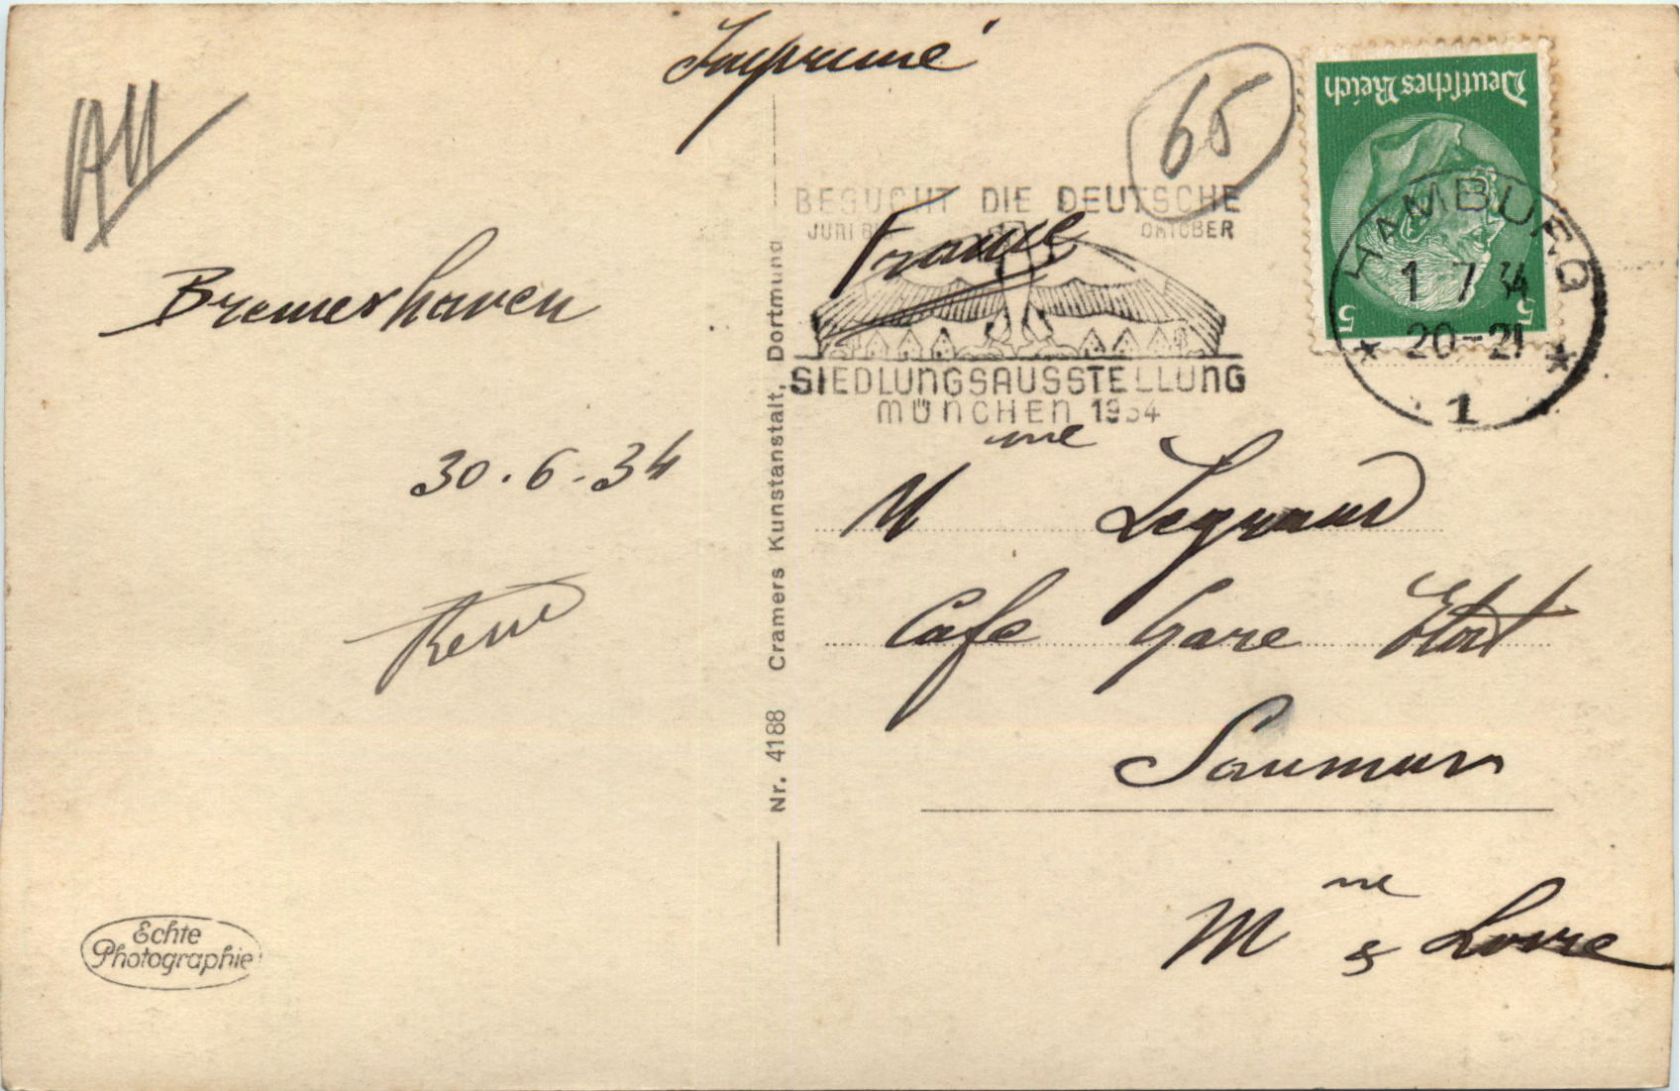 Imprimé
All
65
Deutsches Reich
5 5
HAMBURG
1 7 34
20-21
1
BESUCHT DIE DEUTSCHE
JUNI OKTOBER
SIEDLUNGSAUSSTELLUNG
MÜNCHEN 1934
France
Bremerhaven
30.6.34
René
Nr. 4188 Cramers Kunstanstalt, Dortmund
Mme Legrand
Cafe Gare Etat
Saumur
Mne & Loire
Echte
Photographie